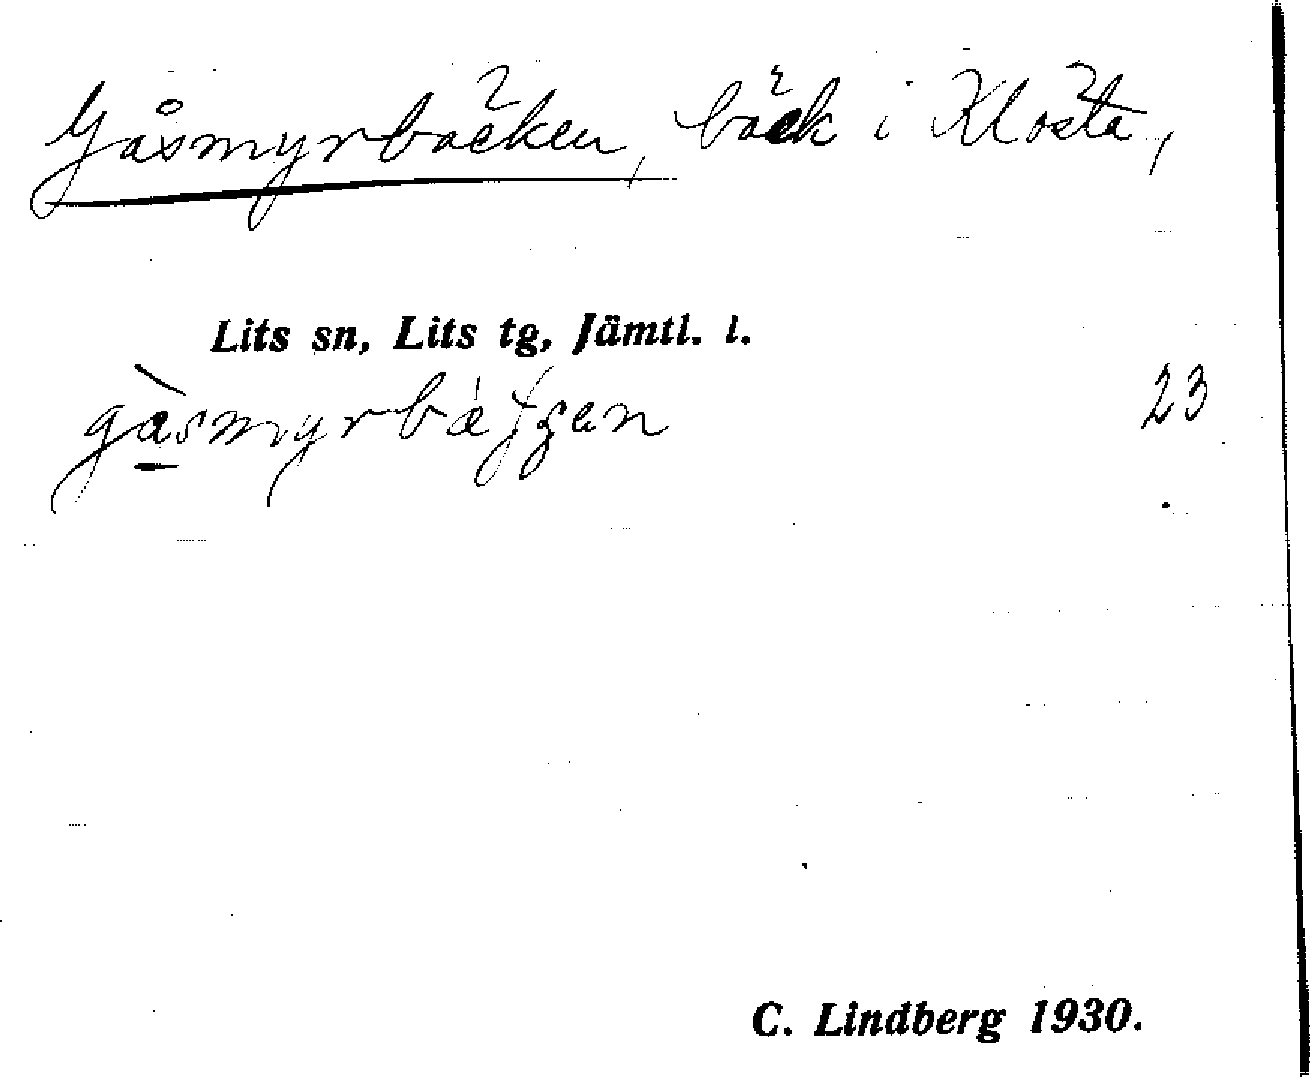 Gåsmyrbäcken, bäck i Klösta,
Lits sn, Lits tg, Jämtl. l.
gåsmyrbæʃʒen 23
C. Lindberg 1930.